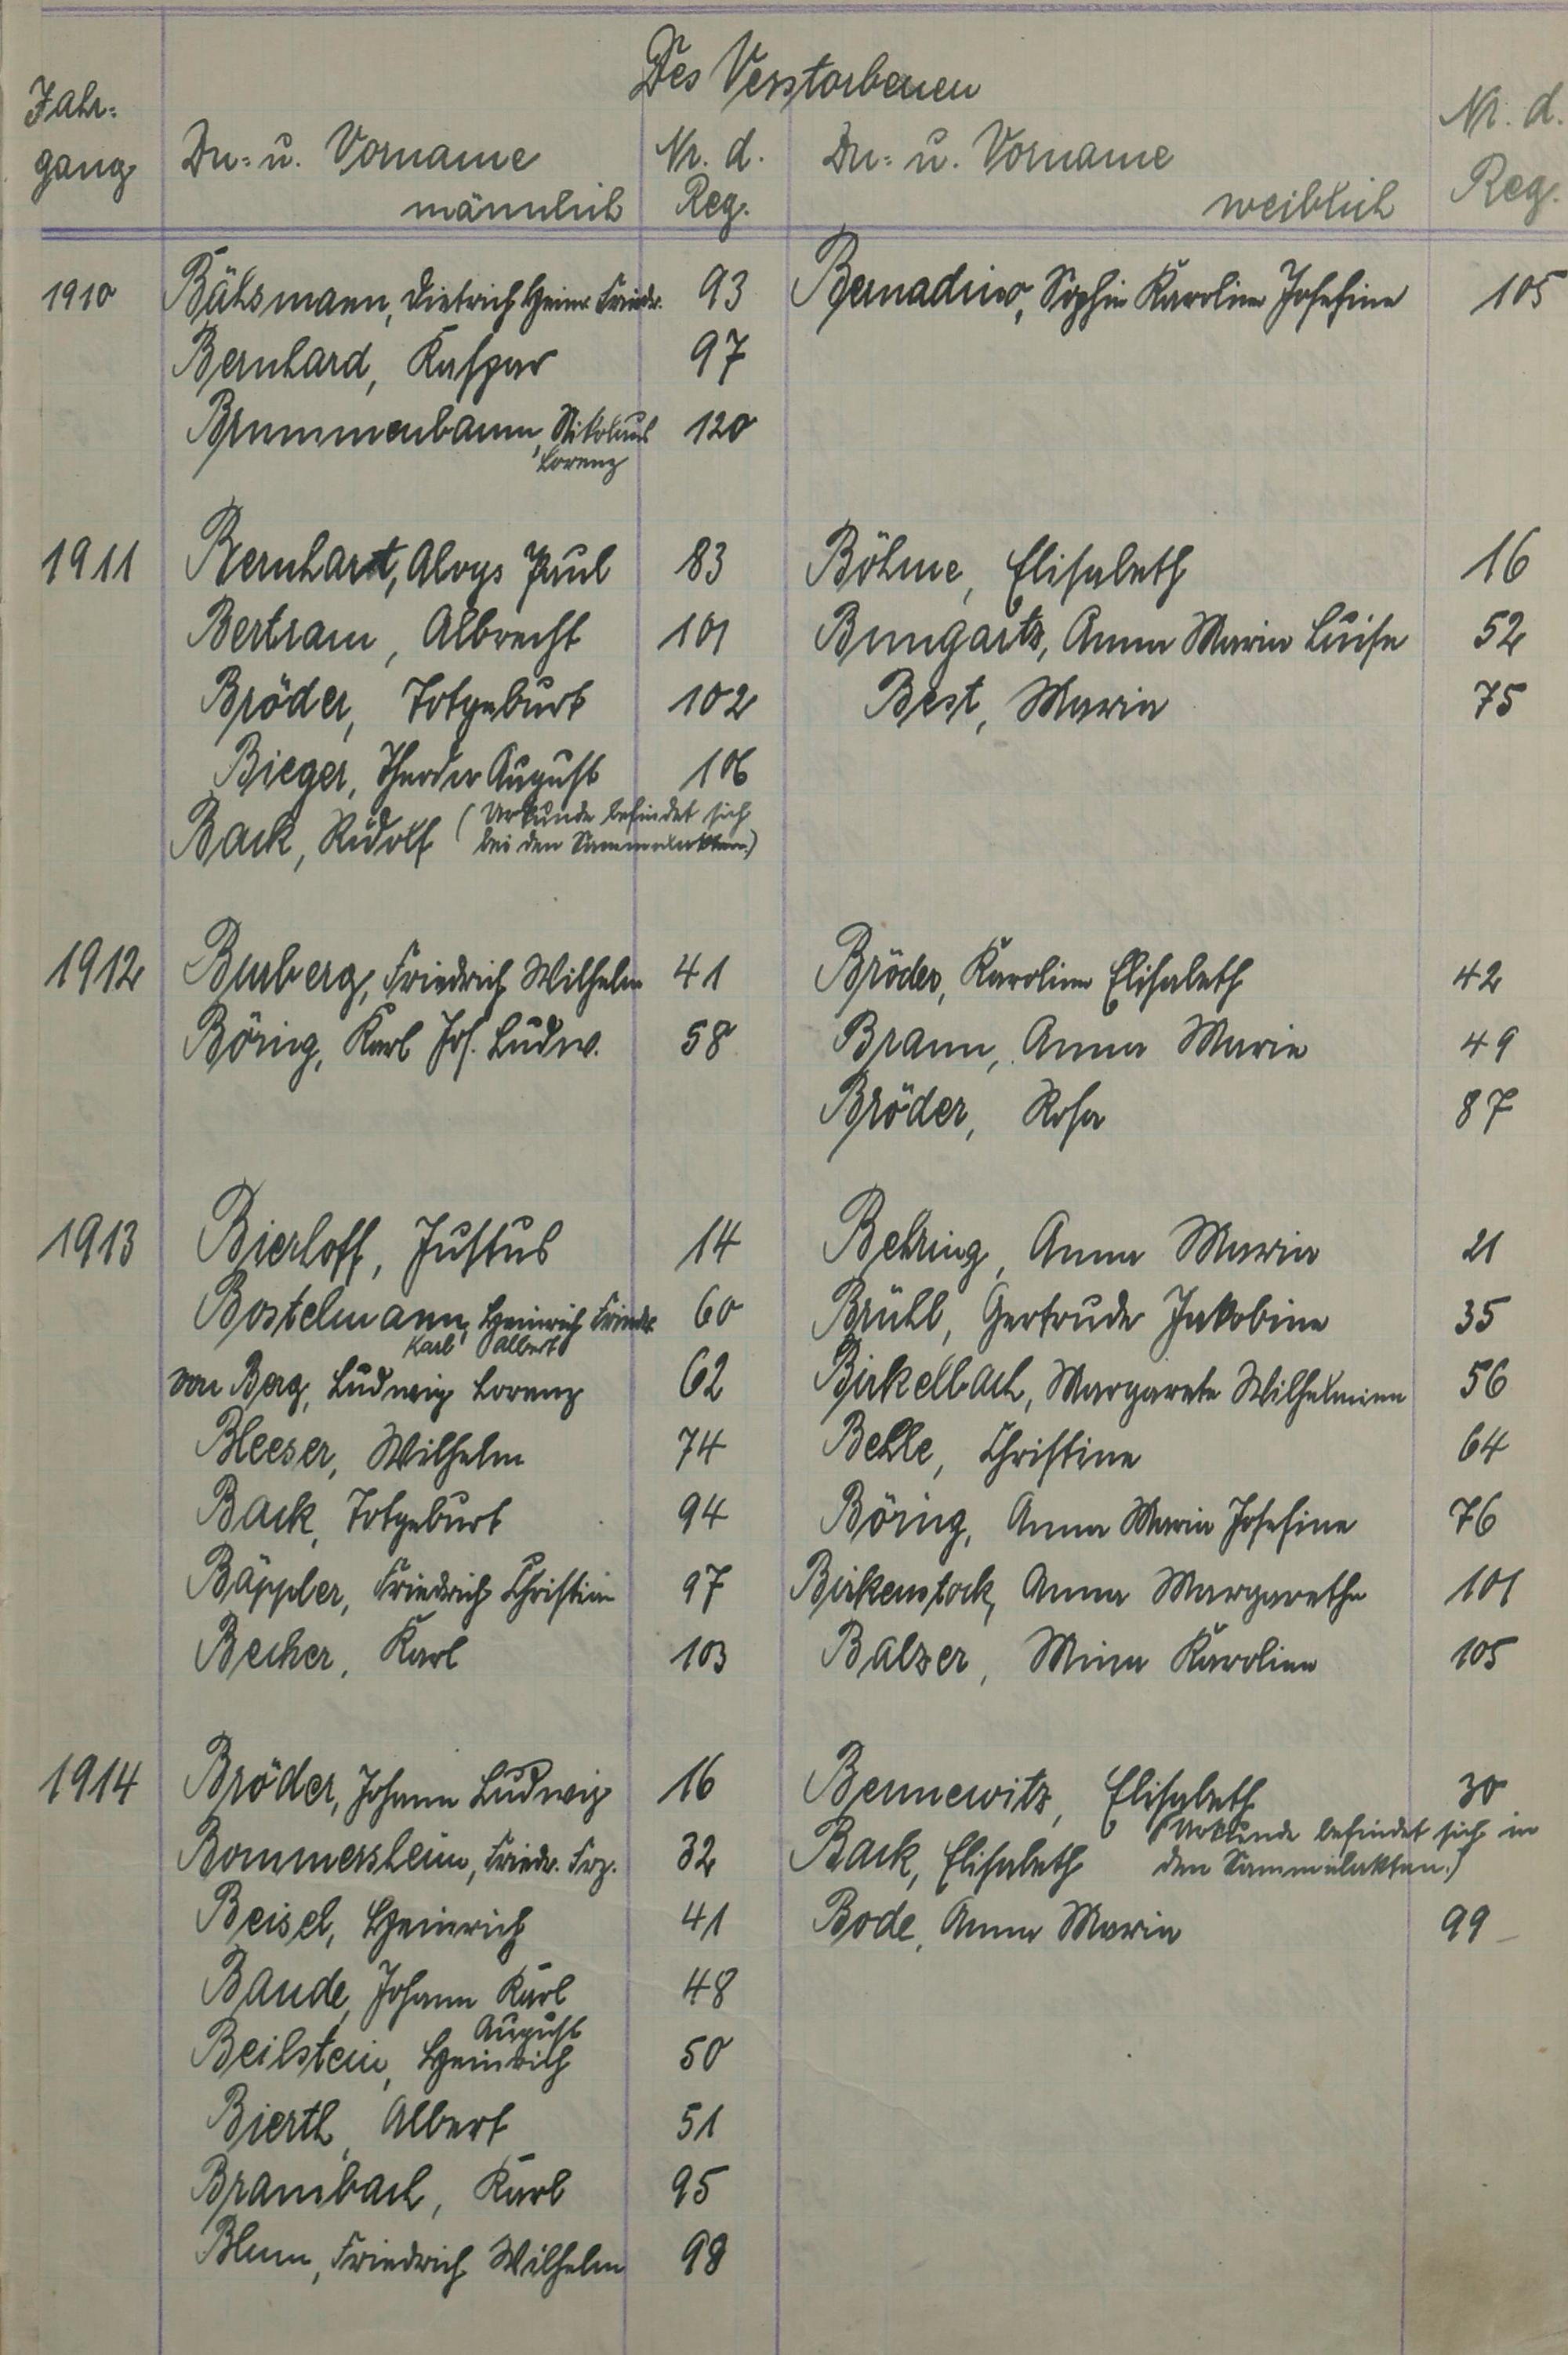 Des Verstorbenen
Jahr-
gang
Zu- u. Vorname
männlich
Nr. d.
Reg.
Zu- u. Vorname
weiblich
Nr. d.
Reg.
1910 Bähsmann, Dietrich Heinr. Friedr. 93 Bernadino, Sophie Karoline Josefine 105
Bernhard, Kaspar 97
Brummenbaum, Nikolaus 120
Lorenz
1911 Bernhart, Aloys Paul 83 Böhme, Elisabeth 16
Bertram, Albrecht 101 Bungartz, Anna Maria Luise 52
Bröder, Totgeburt 102 Best, Maria 75
Bieger, Theodor August 106
Back, Rudolf (Urkunde befindet sich
bei den Sammelakten.)
1912 Burberg, Friedrich Wilhelm 41 Bröder, Karoline Elisabeth 42
Böring, Karl Jos. Ludw. 58 Braun, Anna Maria 49
Bröder, Rosa 87
1913 Bierhoff, Justus 14 Behring, Anna Maria 21
Bostelmann, Heinrich Friedr. 60 Brühl, Gertrude Jakobine 35
Karl Albert
von Berg, Ludwig Lorenz 62 Birkelbach, Margarete Wilhelmine 56
Bleeser, Wilhelm 74 Behle, Christine 64
Back, Totgeburt 94 Böring, Anna Maria Josefine 76
Bäppler, Friedrich Christian 97 Birkenstock, Anna Margarethe 101
Becher, Karl 103 Balzer, Mina Karoline 105
1914 Bröder, Johann Ludwig 16 Bennewitz, Elisabeth 30
Bommersheim, Friedr. Frz. 32 Back, Elisabeth (Urkunde befindet sich in
den Sammelakten.)
Beisel, Heinrich 41 Bode, Anna Maria 99
Baude, Johann Karl 48
August
Beilstein, Heinrich 50
Bierth, Albert 51
Brambach, Karl 95
Blum, Friedrich Wilhelm 98